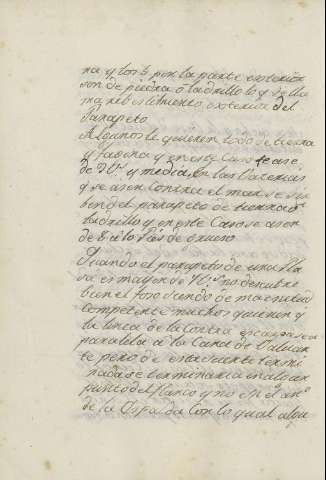 na y los b por la parte exterior
son de piedra o ladrillo lo q se lla
ma rebestimiento exterior del
Parapeto
Algunos le quieren todo de tierra
y faxina y en este caso se ase
de 3 y media, en las
q se asen contra el mar se su
ben el parapeto de tierra o
ladrillo y en este Caso se asen
de 8 a 10 pies de grueso
Quando el parapeto de una Pla
sa es mayor de no descubre
bien el foso siendo de
competente muchos quieren q
la linea de la Contra escarpa sea
paralela a la Cara del Valuar
te pero de este suerte termi
nada se terminaria en algun
punto del flanco y no en el an
de la Espalda Con lo qual algu